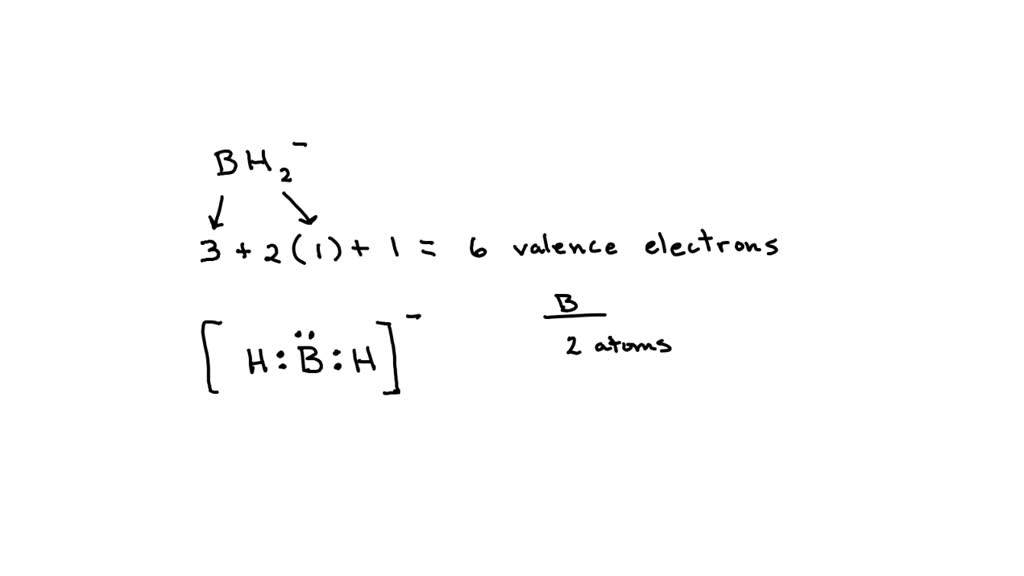 BH₂⁻
3 + 2(1) + 1 = 6 valence electrons
B
2 atoms
[H:B̈:H]⁻